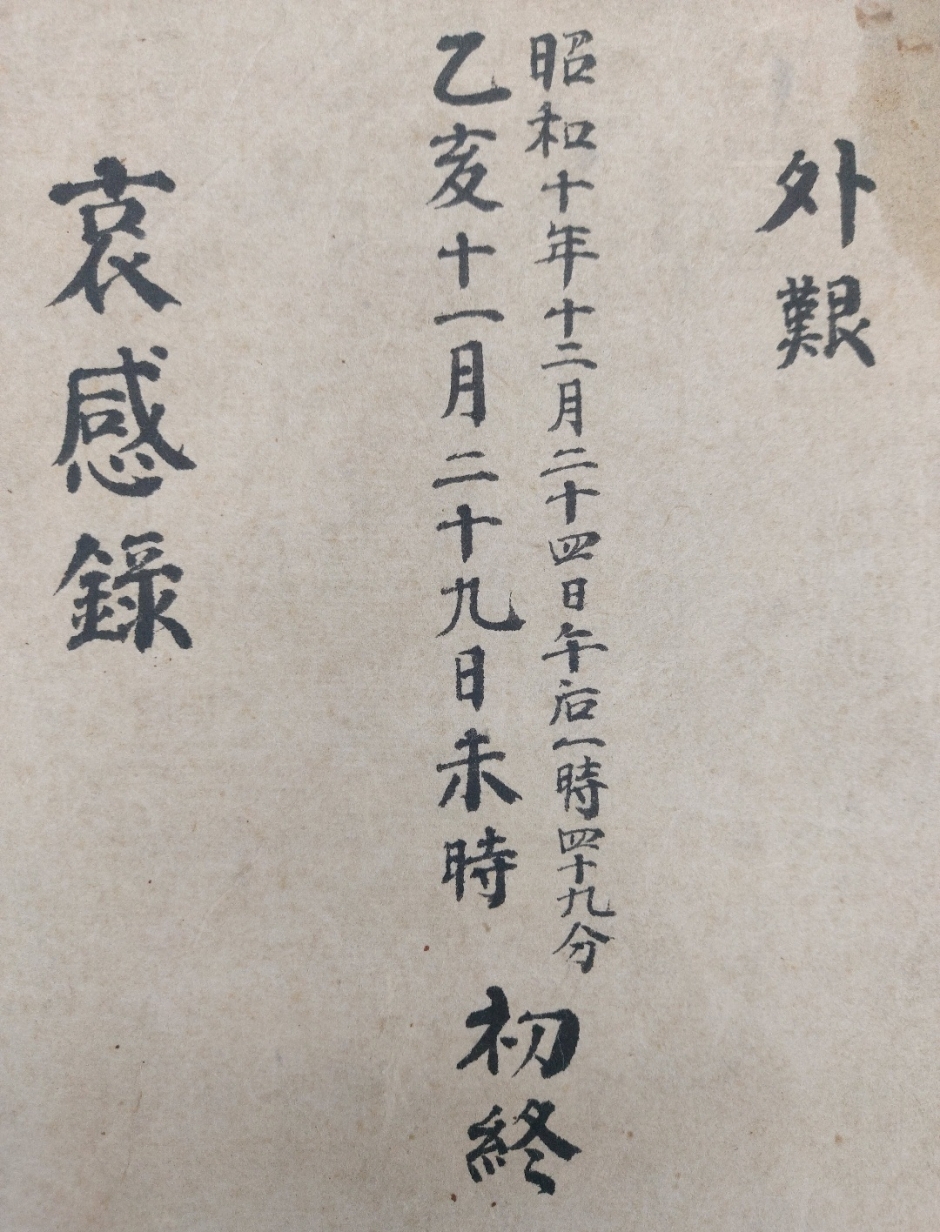 外艱
昭和十年十二月二十四日午后一時四十九分
乙亥十一月二十九日未時
初終
哀感錄